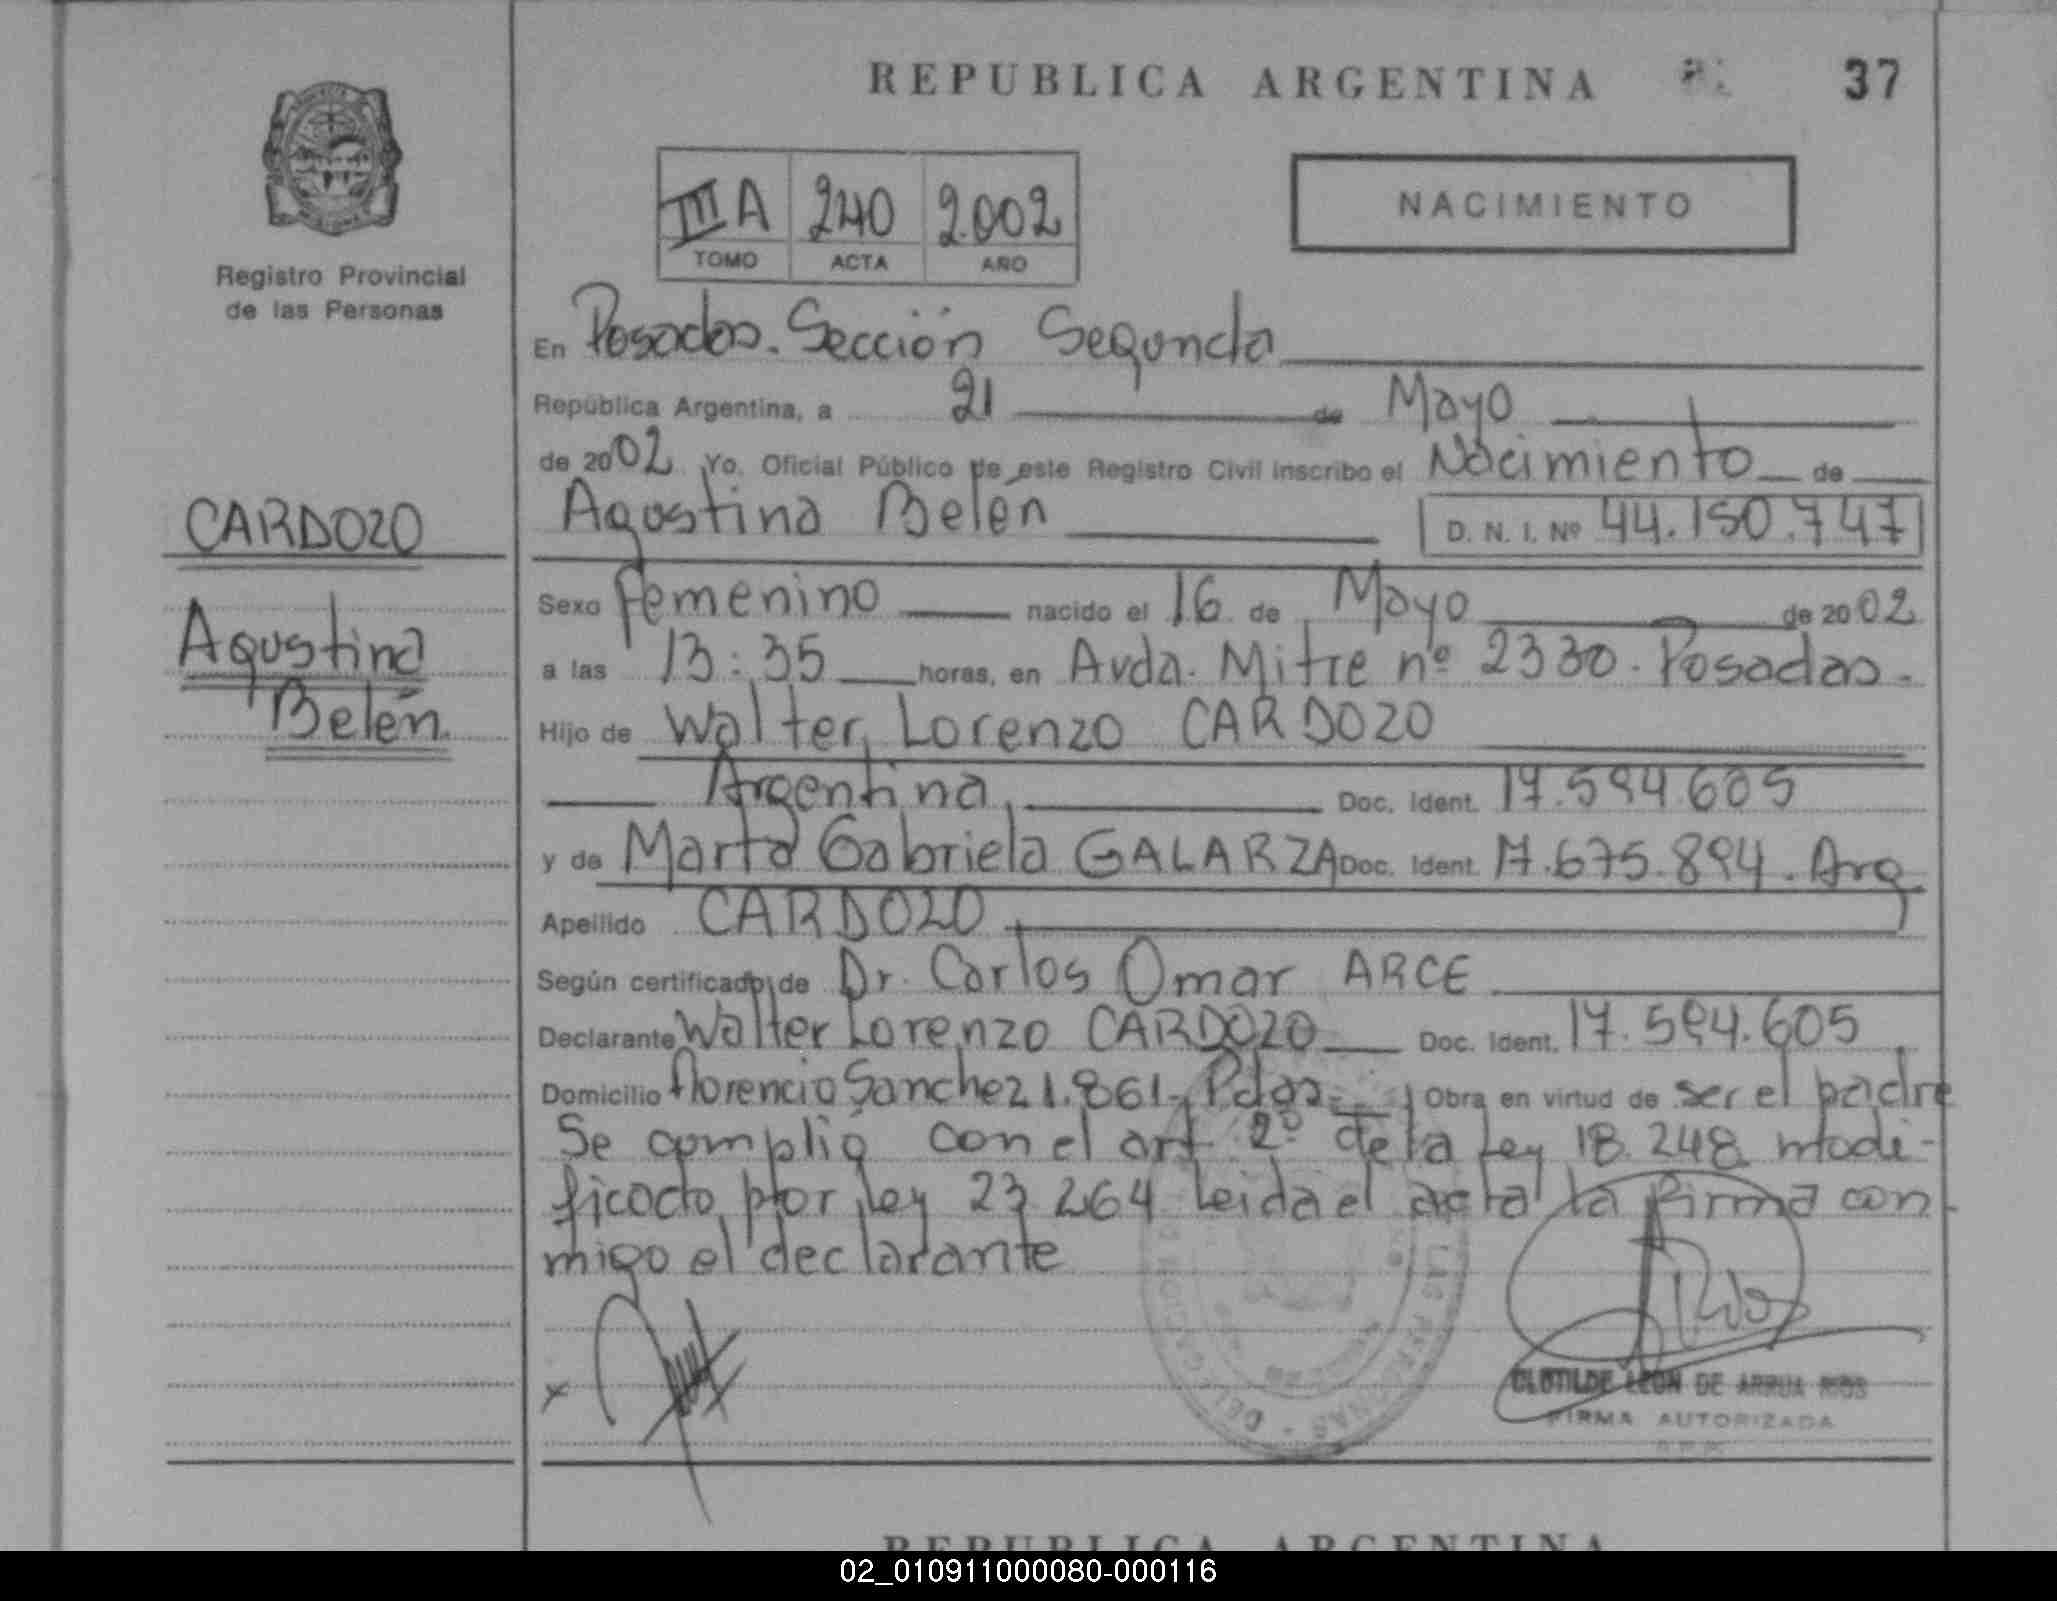 REPUBLICA ARGENTINA 37
III A 240 2.002
TOMO ACTA AÑO
NACIMIENTO
Registro Provincial
de las Personas
En Posadas. Sección Segunda
República Argentina, a 21 de Mayo
de 2002 Yo, Oficial Público de este Registro Civil inscribo el Nacimiento de
CARDOZO
Agustina Belén D. N. I. Nº 44.150.747
Agustina
Belén
Sexo femenino nacido el 16 de Mayo de 2002
a las 13:35 horas, en Avda. Mitre nº 2330. Posadas.
Hijo de Walter Lorenzo CARDOZO
Argentina Doc. Ident. 17.594.605
y de Marta Gabriela GALARZA Doc. Ident. 17.675.894. Arg
Apellido CARDOZO
Según certificado de Dr. Carlos Omar ARCE
Declarante Walter Lorenzo CARDOZO Doc. Ident. 17.594.605
Domicilio Florencio Sanchez 1.861- Pdas Obra en virtud de ser el padre
Se cumplió con el art 2º de la ley 18.248 modi-
ficado por ley 23264 leida el acta la firma con
migo el declarante
CLOTILDE LEON DE ARRUA RIOS
FIRMA AUTORIZADA
REPUBLICA ARGENTINA
02_010911000080-000116